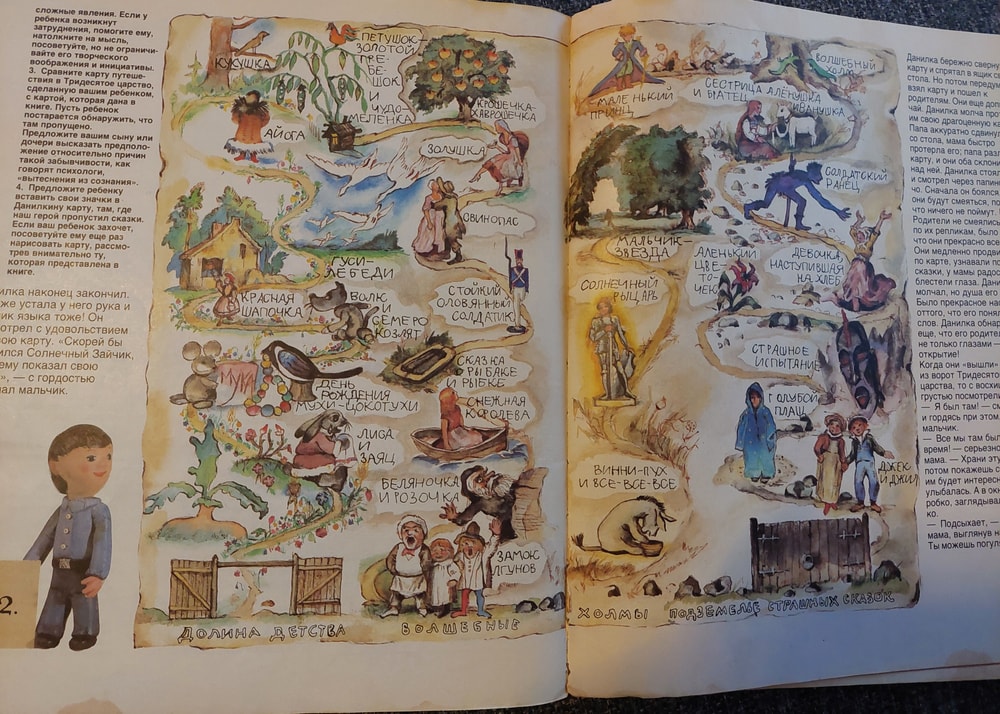 сложные явления. Если у
ребенка возникнут
затруднения, помогите ему,
натолкните на мысль,
посоветуйте, но не ограничи-
вайте его творческого
воображения и инициативы.
3. Сравните карту путеше-
ствия в Тридесятое царство,
сделанную вашим ребенком,
с картой, которая дана в
книге. Пусть ребенок
постарается обнаружить, что
там пропущено.
Предложите вашим сыну или
дочери высказать предполо-
жение относительно причин
такой забывчивости, как
говорят психологи,
«вытеснения из сознания».
4. Предложите ребенку
вставить свои значки в
Данилкину карту, там, где
наш герой пропустил сказки.
Если ваш ребенок захочет,
посоветуйте ему еще раз
нарисовать карту, рассмо-
трев внимательно ту,
которая представлена в
книге.
илка наконец закончил.
же устала у него рука и
чик языка тоже! Он
отрел с удовольствием
вою карту. «Скорей бы
ился Солнечный Зайчик,
ему показал свою
», — с гордостью
ал мальчик.
2.
КУКУШКА
ПЕТУШОК-
ЗОЛОТОЙ
ГРЕ-
БЕ-
ШОК
И ЧУДО-
МЕЛЕНКА
КРОШЕЧКА-
ХАВРОШЕЧКА
АЙОГА
ЗОЛУШКА
СВИНОПАС
ГУСИ-
ЛЕБЕДИ
КРАСНАЯ
ШАПОЧКА
ВОЛК
И
СЕМЕРО
КОЗЛЯТ
СТОЙКИЙ
ОЛОВЯННЫЙ
СОЛДАТИК
СКАЗКА
О РЫБАКЕ
И РЫБКЕ
ДЕНЬ
РОЖДЕНИЯ
МУХИ-ЦОКОТУХИ
СНЕЖНАЯ
КОРОЛЕВА
ЛИСА
И
ЗАЯЦ
БЕЛЯНОЧКА
И РОЗОЧКА
ЗАМОК
ЛГУНОВ
ДОЛИНА ДЕТСТВА
ВОЛШЕБНЫЕ
МАЛЕНЬКИЙ
ПРИНЦ
ВОЛШЕБНЫЙ
ХОЛМ
СЕСТРИЦА АЛЕНУШКА
И БРАТЕЦ ИВАНУШКА
СОЛДАТСКИЙ
РАНЕЦ
МАЛЬЧИК-
ЗВЕЗДА
АЛЕНЬКИЙ
ЦВЕ-
ТО-
ЧЕК
ДЕВОЧКА,
НАСТУПИВШАЯ
НА ХЛЕБ
СОЛНЕЧНЫЙ
РЫЦАРЬ
СТРАШНОЕ
ИСПЫТАНИЕ
ГОЛУБОЙ
ПЛАЩ
ВИННИ-ПУХ
И ВСЕ-ВСЕ-ВСЕ
ДЖЕК
И ДЖИЛ
ХОЛМЫ
ПОДЗЕМЕЛЬЕ СТРАШНЫХ СКАЗОК
Данилка бережно сверну
карту и спрятал в ящик с
стола. Но потом передум
взял карту и пошел к
родителям. Они еще доп
чай. Данилка молча про
им свою драгоценную ка
Папа аккуратно сдвинул
со стола, мама быстро
протерла его; папа разл
карту, и они оба склони
над ней. Данилка стоял
и смотрел через папин
чо. Сначала он боялся
они будут смеяться, по
что ничего не поймут.
Родители не смеялись
по их репликам, было
что они прекрасно все
Они медленно продви
по карте, узнавали по
сказки, у мамы радос
блестели глаза. Данил
молчал, но душа его
Было прекрасное нас
оттого, что его понял
слов. Данилка обнар
еще, что его родител
не только глазами —
открытие!
Когда они «вышли»
из ворот Тридесятог
царства, то с восхи
грустью посмотрел
— Я был там! — см
и гордясь при этом,
мальчик.
— Все мы там был
время! — серьезно
мама. — Храни эту
потом покажешь с
им будет интерес
улыбалась. А в окн
робко, заглядывал
ко.
— Подсыхает, —
мама, выглянув на
Ты можешь погул